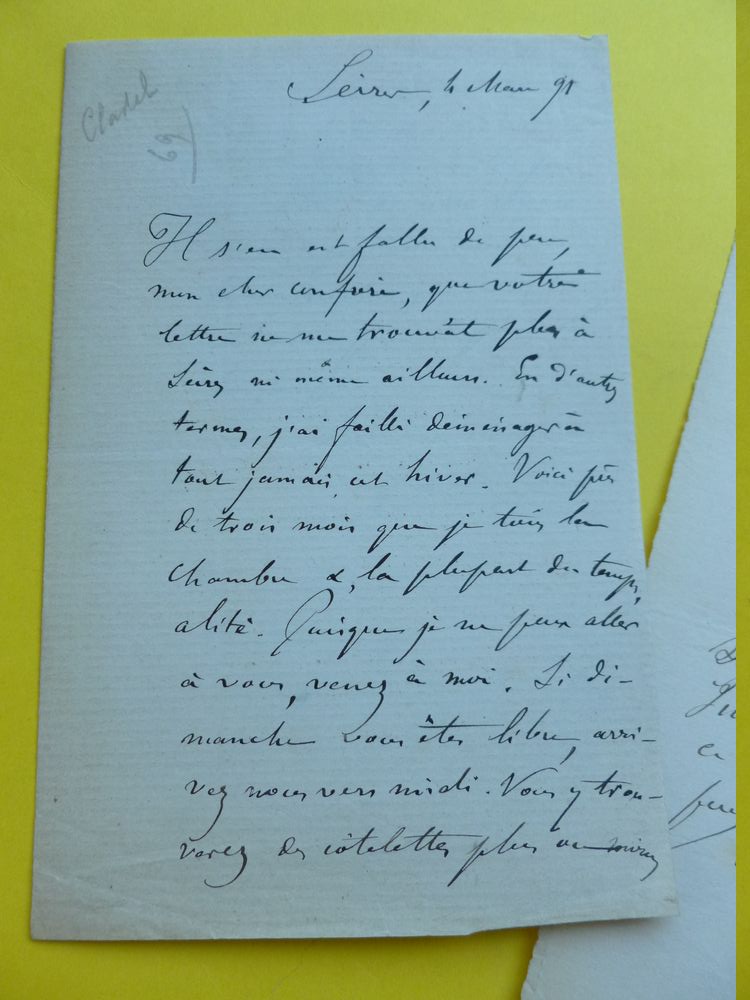 Cladel
69
Sèvres, 4 Mars 91
Il s'en est fallu de peu,
mon cher confrère, que votre
lettre ne me trouvât plus à
Sèvres ni même ailleurs. En d'autres
termes, j'ai failli déménager à
tout jamais cet hiver. Voici près
de trois mois que je tiens la
chambre &, la plupart du temps,
alité. Puisque je ne peux aller
à vous, venez à moi. Si di-
manche vous êtes libre, arri-
vez nous vers midi. Vous y trou-
verez des côtelettes plus ou moins